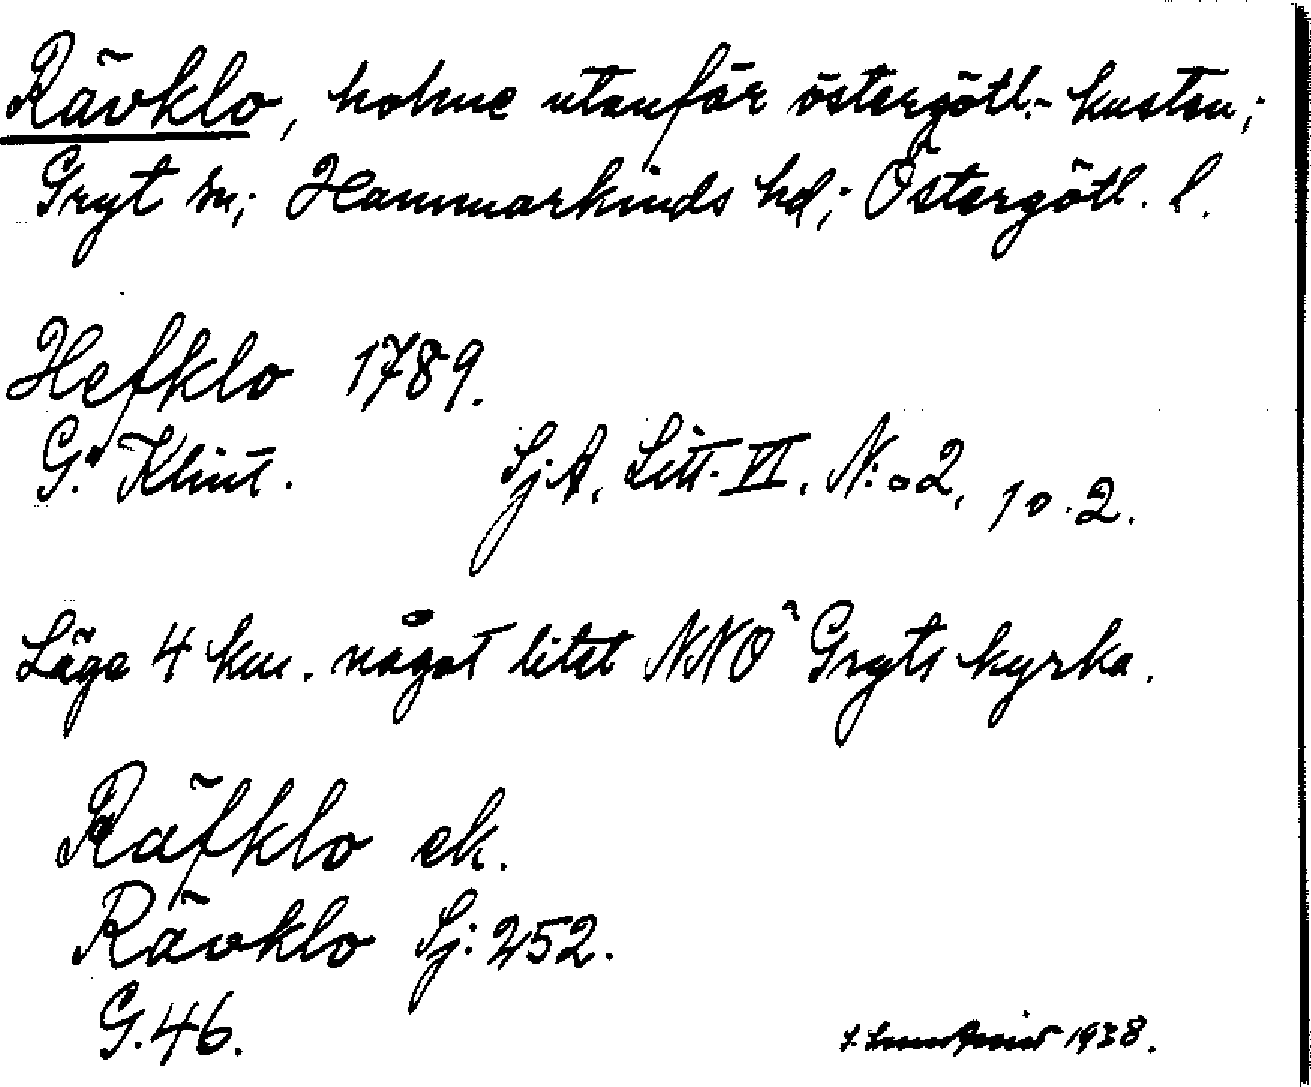 Rävklo, holme utanför östergötl.- kusten;
Gryt sn; Hammarkinds hd; Östergötl. l.
Hefklo 1789.
G. Klint. SjA, Litt. VI. N:o 2, 10.2.
Läge 4 km. något litet NNO Gryts kyrka.
Räfklo ek.
Rävklo Sj: 252.
G. 46.
1938.